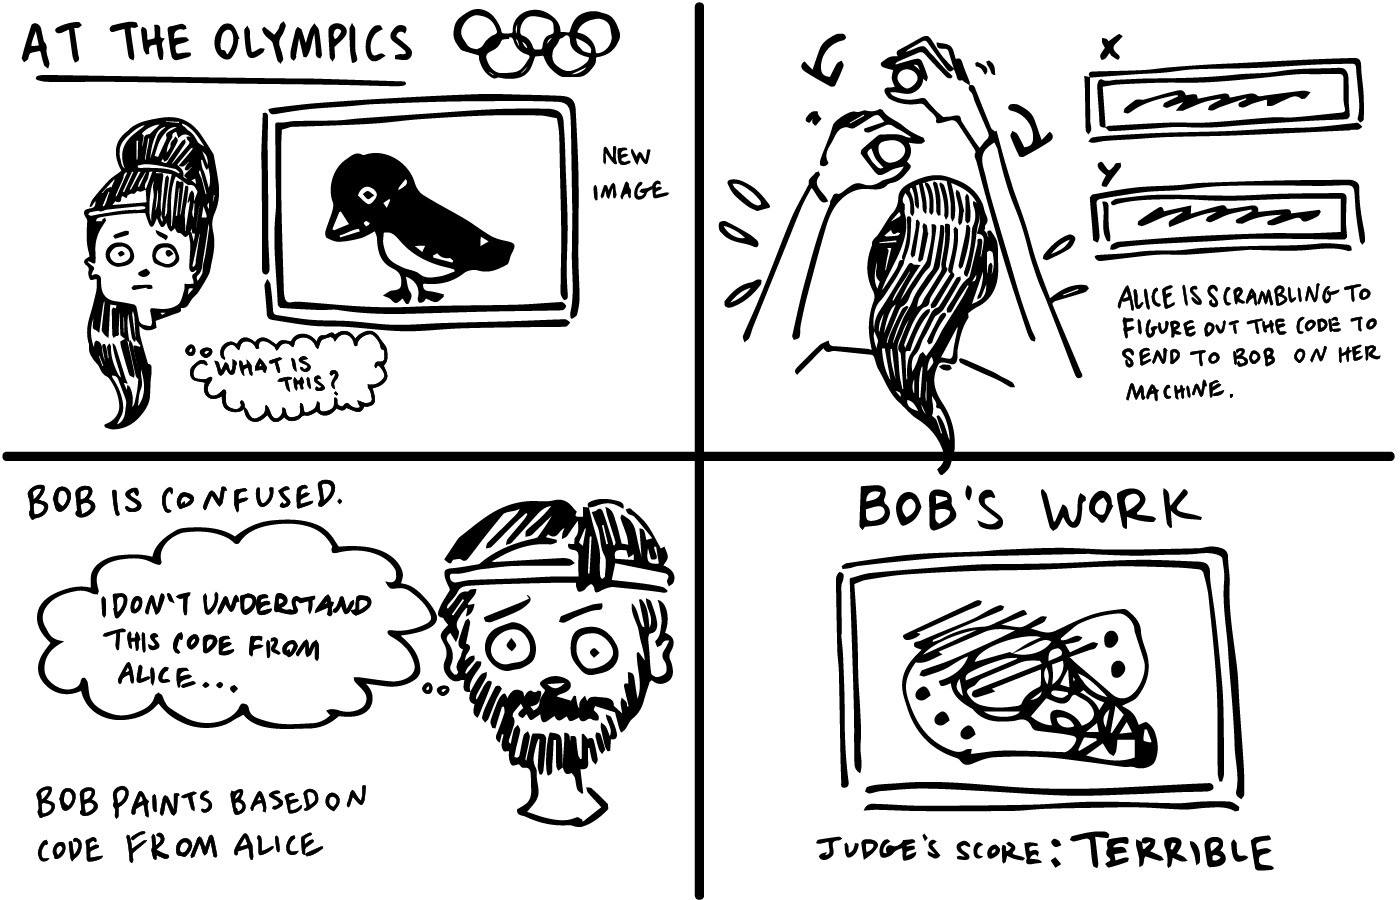 AT THE OLYMPICS
NEW
IMAGE
WHAT IS
THIS?
X
Y
ALICE IS SCRAMBLING TO
FIGURE OUT THE CODE TO
SEND TO BOB ON HER
MACHINE.
BOB IS CONFUSED.
I DON'T UNDERSTAND
THIS CODE FROM
ALICE...
BOB PAINTS BASED ON
CODE FROM ALICE
BOB'S WORK
JUDGE'S SCORE: TERRIBLE